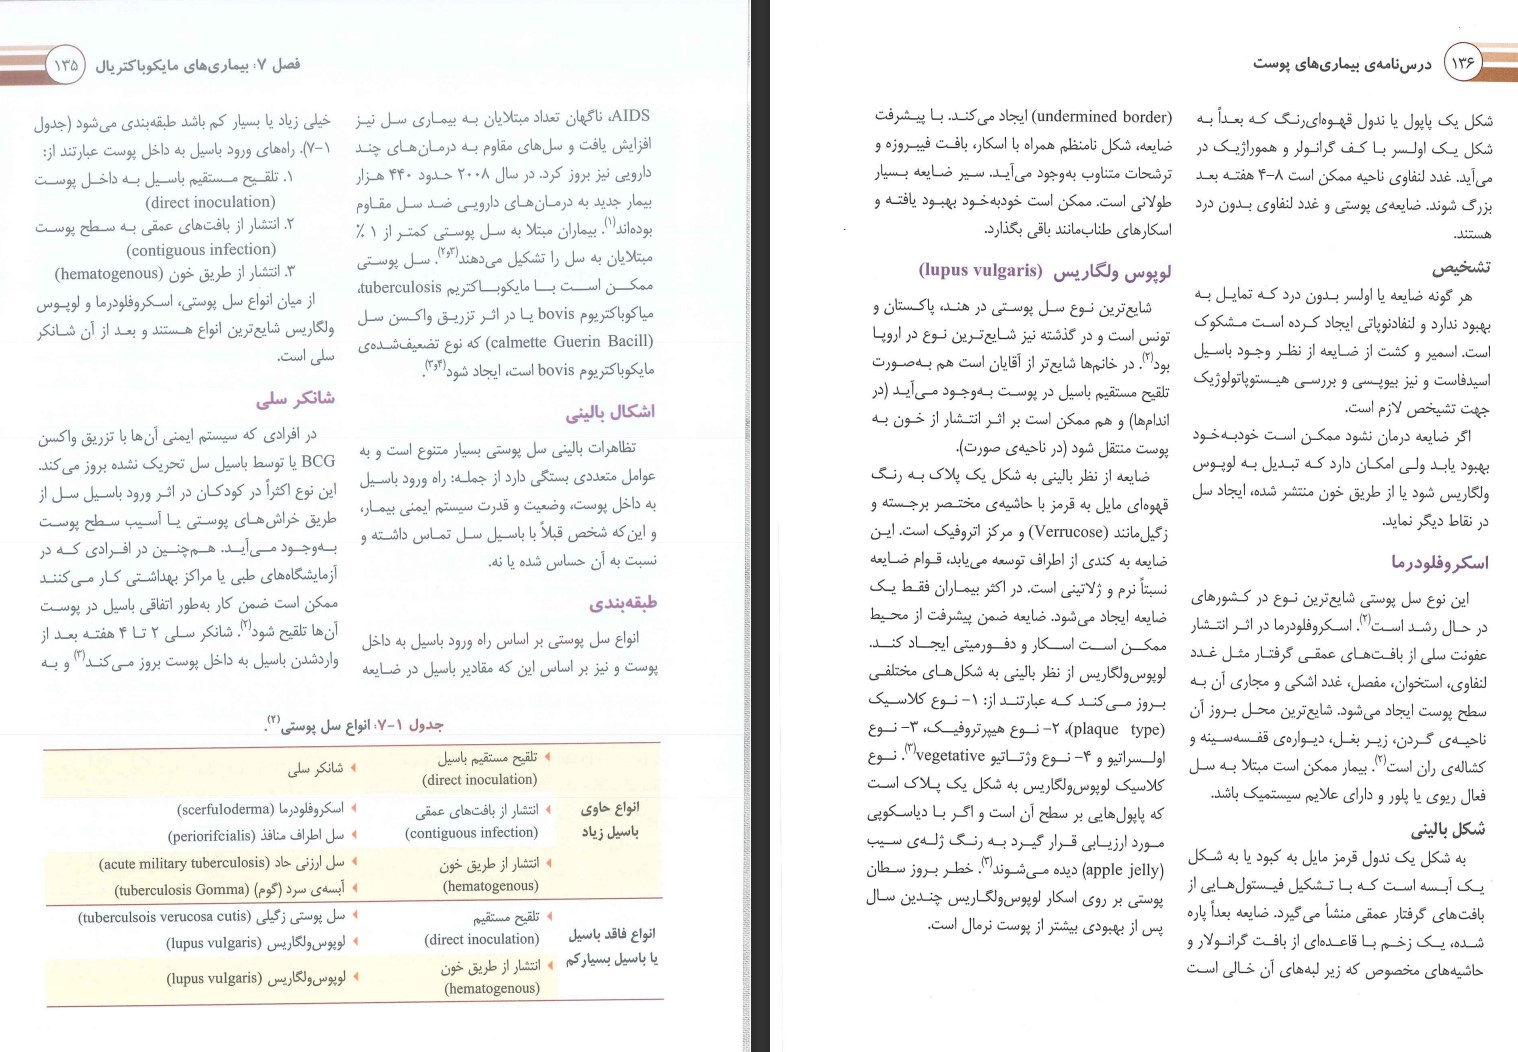 فصل ۷: بیماری‌های مایکوباکتریال ۱۳۵
AIDS، ناگهان تعداد مبتلایان به بیماری سل نیز
افزایش یافت و سل‌های مقاوم به درمان‌های چند
دارویی نیز بروز کرد. در سال ۲۰۰۸ حدود ۴۴۰ هزار
بیمار جدید به درمان‌های دارویی ضد سل مقاوم
بوده‌اند(۱). بیماران مبتلا به سل پوستی کمتر از ۱ ٪
مبتلایان به سل را تشکیل می‌دهند(۲و۳). سل پوستی
ممکن است با مایکوباکتریم tuberculosis،
میاکوباکتریوم bovis یا در اثر تزریق واکسن سل
(calmette Guerin Bacill) که نوع تضعیف‌شده‌ی
مایکوباکتریوم bovis است، ایجاد شود(۳و۴).
اشکال بالینی
تظاهرات بالینی سل پوستی بسیار متنوع است و به
عوامل متعددی بستگی دارد از جمله: راه ورود باسیل
به داخل پوست، وضعیت و قدرت سیستم ایمنی بیمار،
و این‌که شخص قبلاً با باسیل سل تماس داشته و
نسبت به آن حساس شده یا نه.
طبقه‌بندی
انواع سل پوستی بر اساس راه ورود باسیل به داخل
پوست و نیز بر اساس این که مقادیر باسیل در ضایعه
خیلی زیاد یا بسیار کم باشد طبقه‌بندی می‌شود (جدول
۷-۱). راه‌های ورود باسیل به داخل پوست عبارتند از:
۱. تلقیح مستقیم باسیل به داخل پوست
(direct inoculation)
۲. انتشار از بافت‌های عمقی به سطح پوست
(contiguous infection)
۳. انتشار از طریق خون (hematogenous)
از میان انواع سل پوستی، اسکروفلودرما و لوپوس
ولگاریس شایع‌ترین انواع هستند و بعد از آن شانکر
سلی است.
شانکر سلی
در افرادی که سیستم ایمنی آن‌ها با تزریق واکسن
BCG یا توسط باسیل سل تحریک نشده بروز می‌کند.
این نوع اکثراً در کودکان در اثر ورود باسیل سل از
طریق خراش‌های پوستی یا آسیب سطح پوست
به‌وجود می‌آید. هم‌چنین در افرادی که در
آزمایشگاه‌های طبی یا مراکز بهداشتی کار می‌کنند
ممکن است ضمن کار به‌طور اتفاقی باسیل در پوست
آن‌ها تلقیح شود(۲). شانکر سلی ۲ تا ۴ هفته بعد از
واردشدن باسیل به داخل پوست بروز می‌کند(۳) و به
جدول ۱-۷: انواع سل پوستی(۲).
انواع حاوی
باسیل زیاد
تلقیح مستقیم باسیل
(direct inoculation)
شانکر سلی
انتشار از بافت‌های عمقی
(contiguous infection)
اسکروفلودرما (scerfuloderma)
سل اطراف منافذ (periorifcialis)
انتشار از طریق خون
(hematogenous)
سل ارزنی حاد (acute military tuberculosis)
آبسه‌ی سرد (گوم) (tuberculosis Gomma)
انواع فاقد باسیل
یا باسیل بسیار کم
تلقیح مستقیم
(direct inoculation)
سل پوستی زگیلی (tuberculsois verucosa cutis)
لوپوس‌ولگاریس (lupus vulgaris)
انتشار از طریق خون
(hematogenous)
لوپوس‌ولگاریس (lupus vulgaris)
۱۳۶ درس‌نامه‌ی بیماری‌های پوست
شکل یک پاپول یا ندول قهوه‌ای‌رنگ که بعداً به
شکل یک اولسر با کف گرانولر و هموراژیک در
می‌آید. غدد لنفاوی ناحیه ممکن است ۸-۴ هفته بعد
بزرگ شوند. ضایعه‌ی پوستی و غدد لنفاوی بدون درد
هستند.
تشخیص
هر گونه ضایعه یا اولسر بدون درد که تمایل به
بهبود ندارد و لنفادنوپاتی ایجاد کرده است مشکوک
است. اسمیر و کشت از ضایعه از نظر وجود باسیل
اسیدفاست و نیز بیوپسی و بررسی هیستوپاتولوژیک
جهت تشیخص لازم است.
اگر ضایعه درمان نشود ممکن است خودبه‌خود
بهبود یابد ولی امکان دارد که تبدیل به لوپوس
ولگاریس شود یا از طریق خون منتشر شده، ایجاد سل
در نقاط دیگر نماید.
اسکروفلودرما
این نوع سل پوستی شایع‌ترین نوع در کشورهای
در حال رشد است(۲). اسکروفلودرما در اثر انتشار
عفونت سلی از بافت‌های عمقی گرفتار مثل غدد
لنفاوی، استخوان، مفصل، غدد اشکی و مجاری آن به
سطح پوست ایجاد می‌شود. شایع‌ترین محل بروز آن
ناحیه‌ی گردن، زیر بغل، دیواره‌ی قفسه‌سینه و
کشاله‌ی ران است(۲). بیمار ممکن است مبتلا به سل
فعال ریوی یا پلور و دارای علایم سیستمیک باشد.
شکل بالینی
به شکل یک ندول قرمز مایل به کبود یا به شکل
یک آبسه است که با تشکیل فیستول‌هایی از
بافت‌های گرفتار عمقی منشأ می‌گیرد. ضایعه بعداً پاره
شده، یک زخم با قاعده‌ای از بافت گرانولار و
حاشیه‌های مخصوص که زیر لبه‌های آن خالی است
(undermined border) ایجاد می‌کند. با پیشرفت
ضایعه، شکل نامنظم همراه با اسکار، بافت فیبروزه و
ترشحات متناوب به‌وجود می‌آید. سیر ضایعه بسیار
طولانی است. ممکن است خودبه‌خود بهبود یافته و
اسکارهای طناب‌مانند باقی بگذارد.
لوپوس ولگاریس (lupus vulgaris)
شایع‌ترین نوع سل پوستی در هند، پاکستان و
تونس است و در گذشته نیز شایع‌ترین نوع در اروپا
بود(۲). در خانم‌ها شایع‌تر از آقایان است هم به‌صورت
تلقیح مستقیم باسیل در پوست به‌وجود می‌آید (در
اندام‌ها) و هم ممکن است بر اثر انتشار از خون به
پوست منتقل شود (در ناحیه‌ی صورت).
ضایعه از نظر بالینی به شکل یک پلاک به رنگ
قهوه‌ای مایل به قرمز با حاشیه‌ی مختصر برجسته و
زگیل‌مانند (Verrucose) و مرکز اتروفیک است. این
ضایعه به کندی از اطراف توسعه می‌یابد، قوام ضایعه
نسبتاً نرم و ژلاتینی است. در اکثر بیماران فقط یک
ضایعه ایجاد می‌شود. ضایعه ضمن پیشرفت از محیط
ممکن است اسکار و دفورمیتی ایجاد کند.
لوپوس‌ولگاریس از نظر بالینی به شکل‌های مختلفی
بروز می‌کند که عبارتند از: ۱- نوع کلاسیک
(plaque type)، ۲- نوع هیپرتروفیک، ۳- نوع
اولسراتیو و ۴- نوع وژتاتیو vegetative(۳). نوع
کلاسیک لوپوس‌ولگاریس به شکل یک پلاک است
که پاپول‌هایی بر سطح آن است و اگر با دیاسکوپی
مورد ارزیابی قرار گیرد به رنگ ژله‌ی سیب
(apple jelly) دیده می‌شوند(۳). خطر بروز سطان
پوستی بر روی اسکار لوپوس‌ولگاریس چندین سال
پس از بهبودی بیشتر از پوست نرمال است.